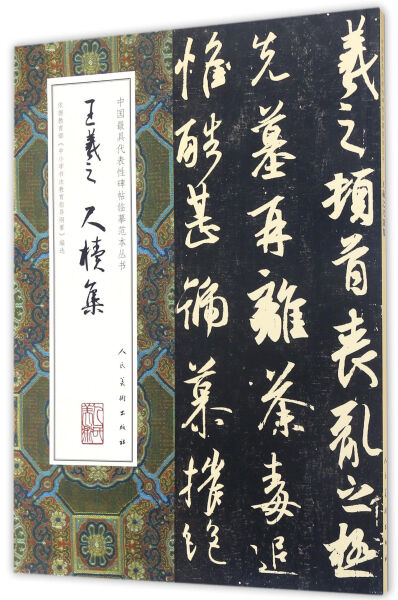 羲之頓首喪亂之極
先墓再離荼毒追
惟酷甚號慕摧絕
中国最具代表性碑帖临摹范本丛书
王羲之 尺牍集
依据教育部《中小学书法教育指导纲要》编选
人民美术出版社